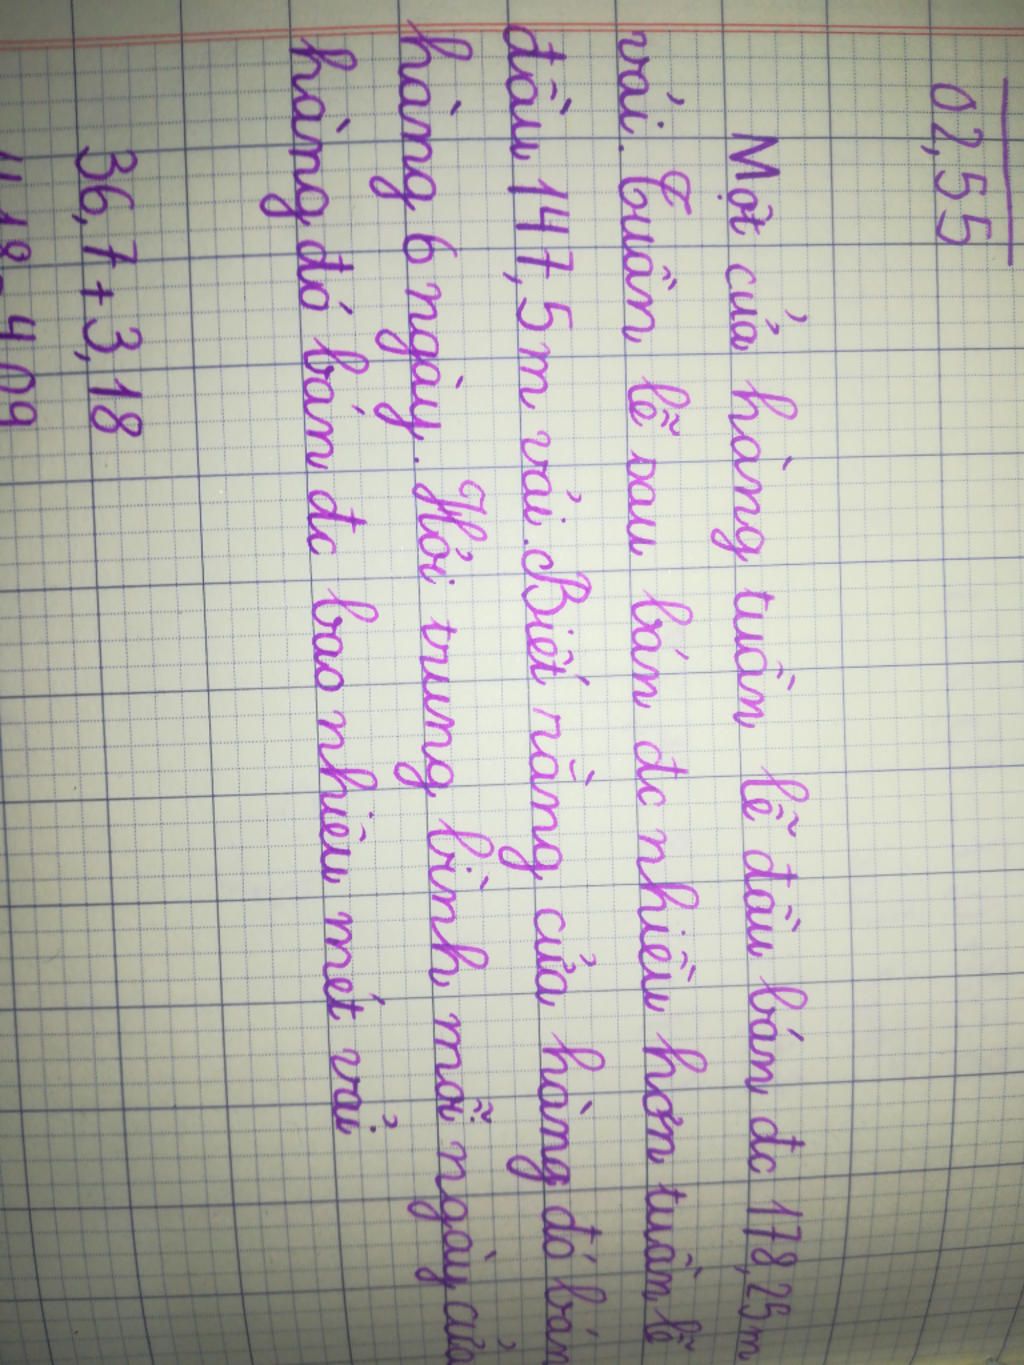 02,55
Một cửa hàng tuần lễ đầu bán đc 178,25m
vải. Tuần lễ sau bán đc nhiều hơn tuần lễ
đầu 147,5m vải. Biết rằng cửa hàng đó bán
hàng 6 ngày. Hỏi trung bình mỗi ngày cửa
hàng đó bán đc bao nhiêu mét vải
36,7+3,18